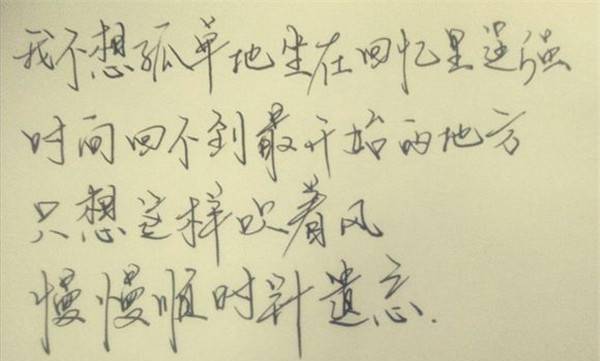 我不想孤单地坐在回忆里逞强
时间回不到最开始的地方
只想这样吹着风
慢慢顺时针遗忘.